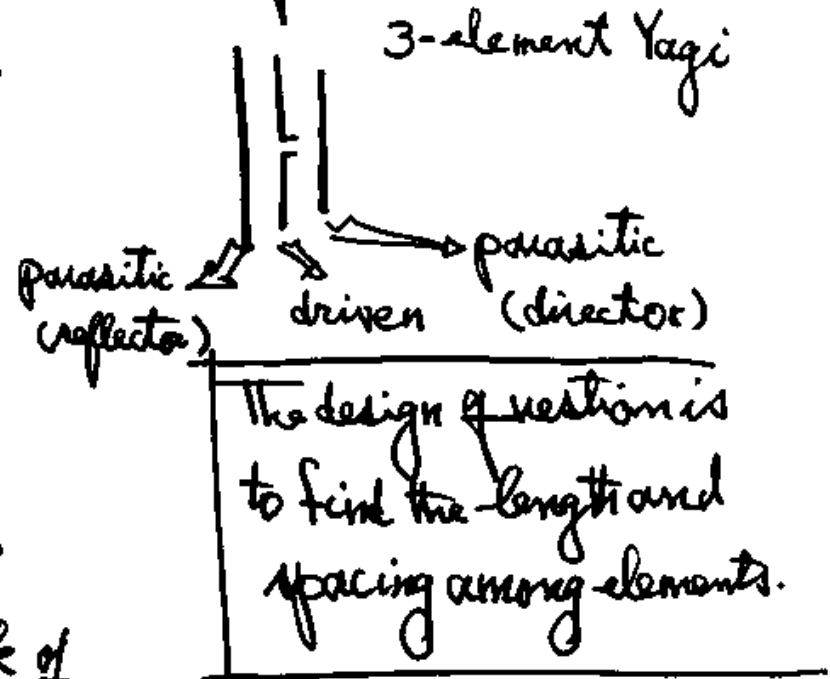 3-element Yagi
parasitic
(reflector)
driven
parasitic
(director)
The design question is
to find the length and
spacing among elements.
of